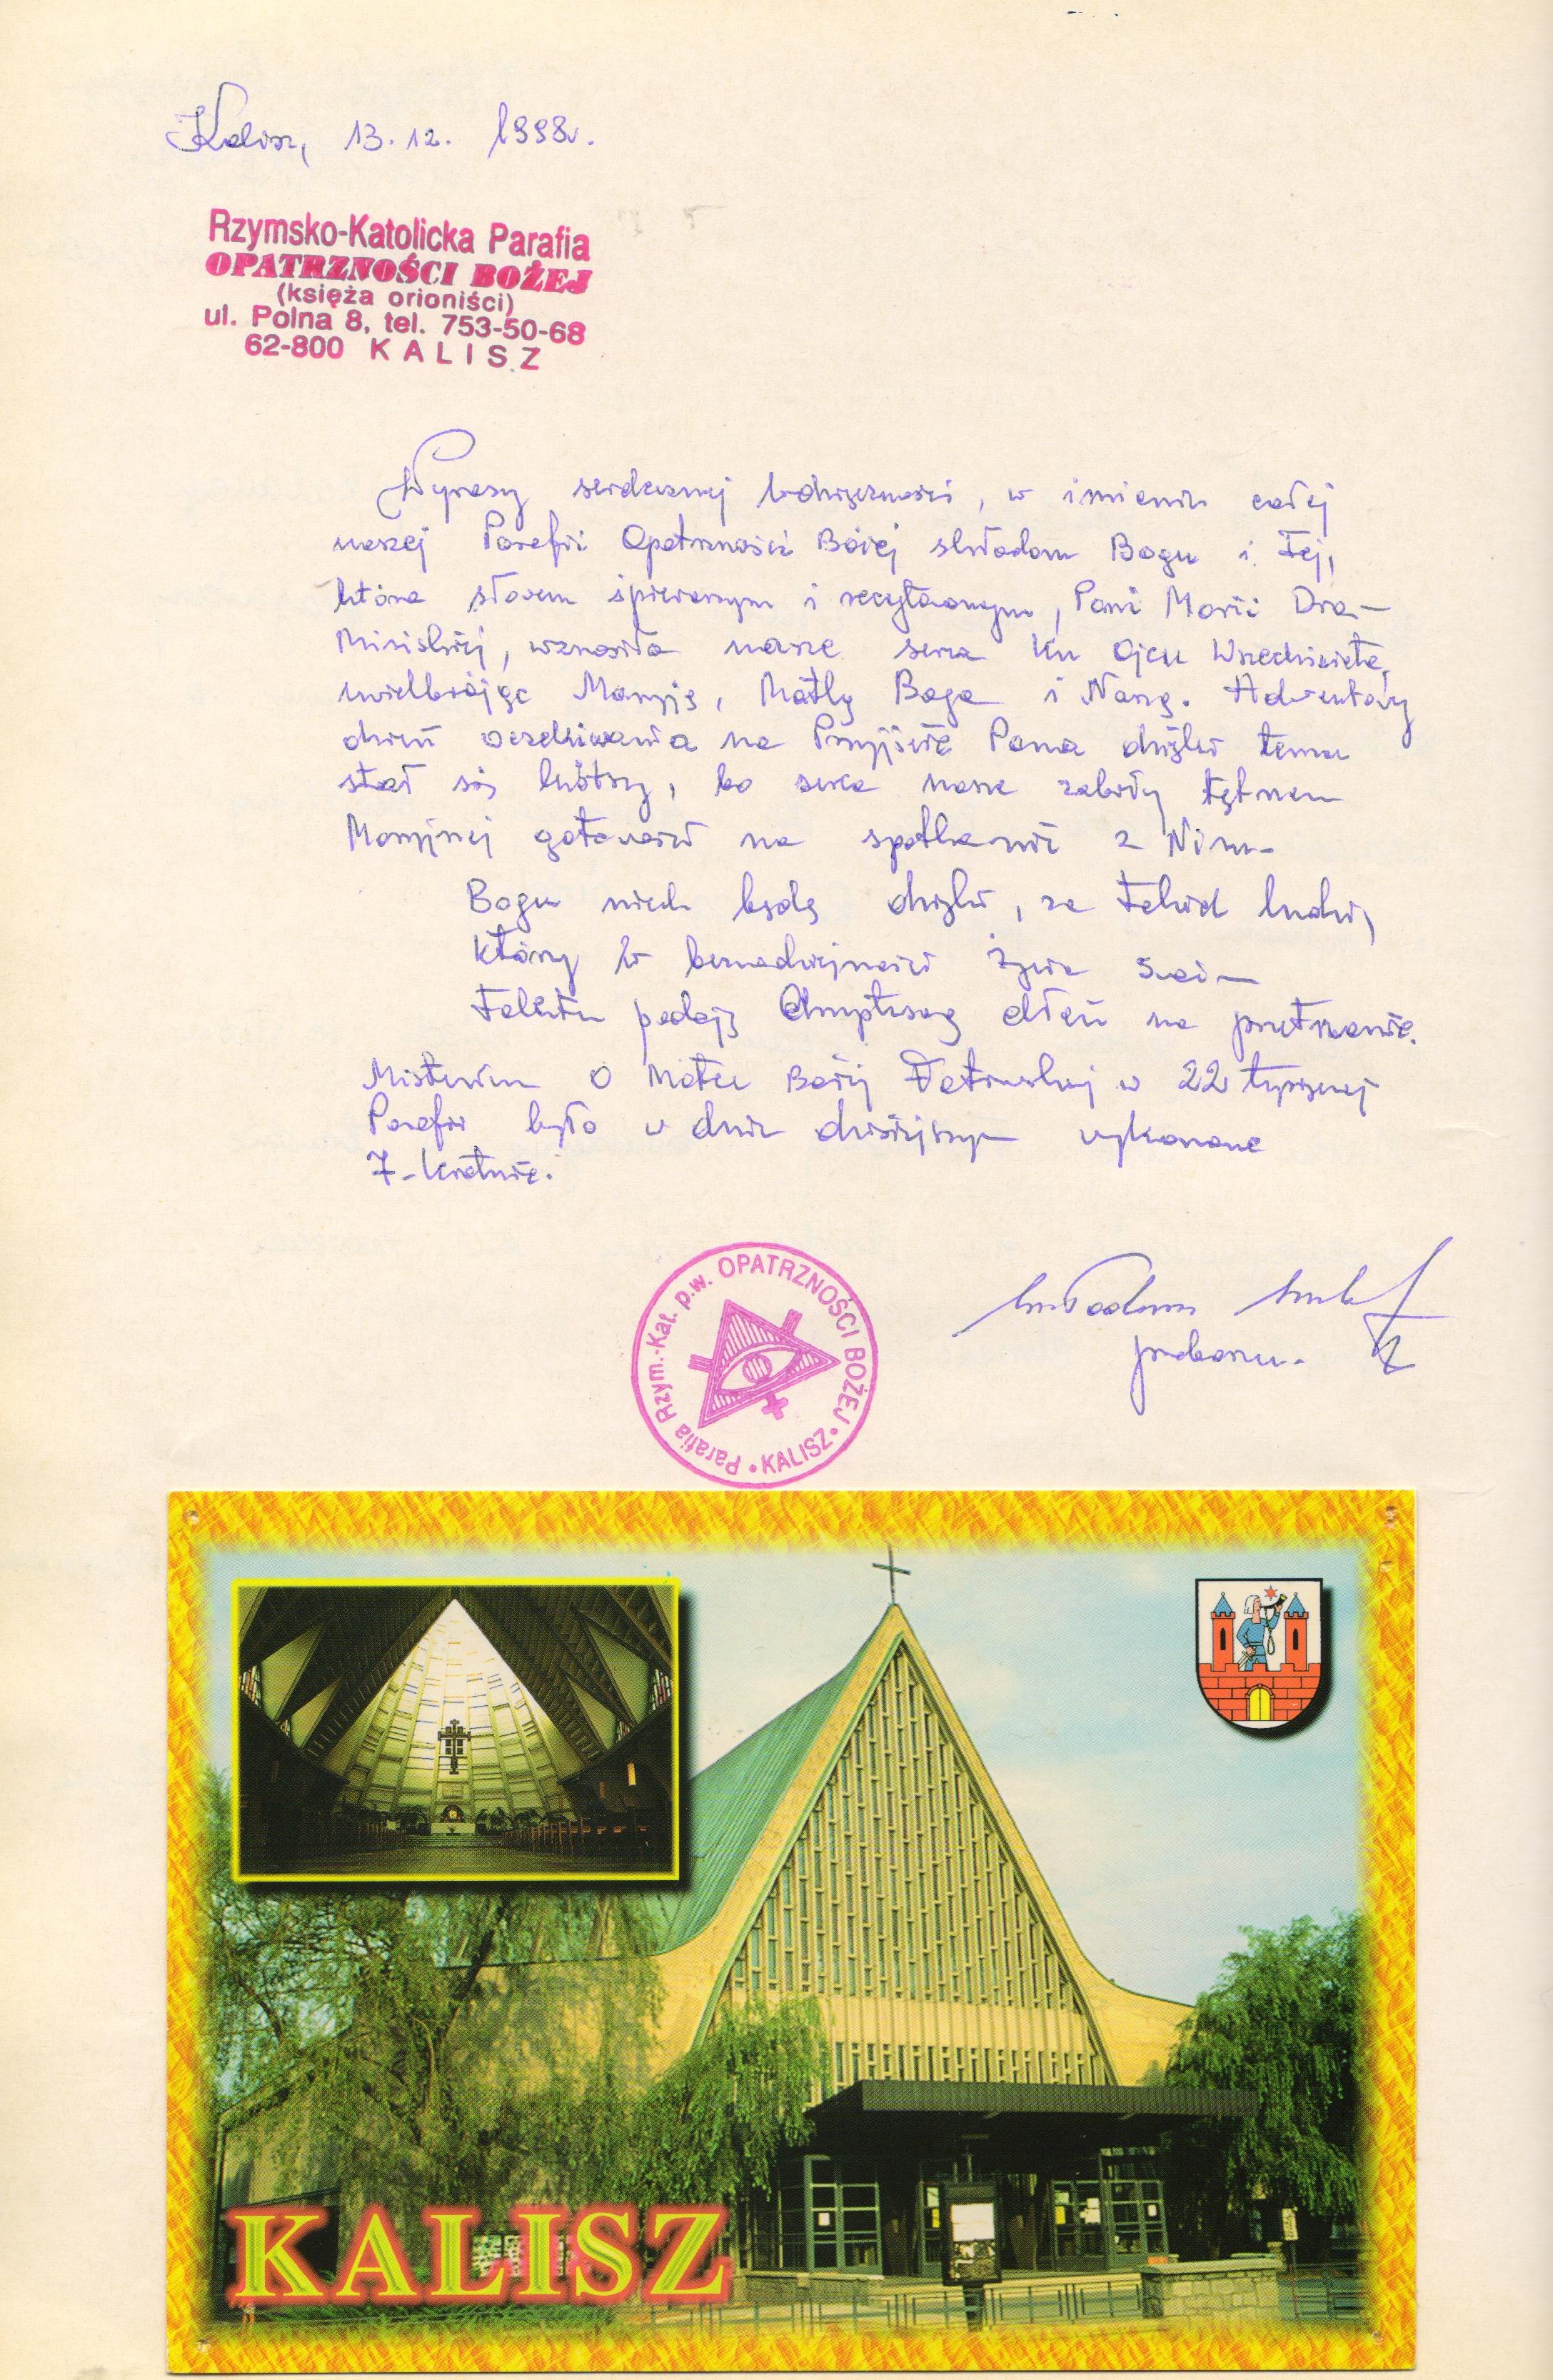 Kalisz, 13.12. 1998r.
Rzymsko-Katolicka Parafia
OPATRZNOŚCI BOŻEJ
(księża orioniści)
ul. Polna 8, tel. 753-50-68
62-800 KALISZ
Wyrazy serdecznej wdzięczności, w imieniu całej
naszej Parafii Opatrzności Bożej składam Bogu i Tej,
która słowem śpiewanym i recytowanym, Pani Marii Dra-
, wznosiła nasze serca ku Ojcu Wszechświata,
uwielbiając Maryję, Matkę Boga i Naszą. Adwentowy
dzień oczekiwania na Przyjście Pana dzięki temu
stał się krótszy, bo serca nasze zabiły tętnem
Maryjnej gotowości na spotkanie z Nim.
Bogu niech będą dzięki, za takich ludzi,
którzy w beznadziejności życia świa-
tełku podają Chrystusową dłoń na przetrwanie.
Misterium o Matce Bożej Fatimskiej w 22 tysięcznej
Parafii było w dniu dzisiejszym wykonane
7-krotnie.
Parafia Rzym.-Kat. p.w. OPATRZNOŚCI BOŻEJ • KALISZ •
proboszcz
KALISZ